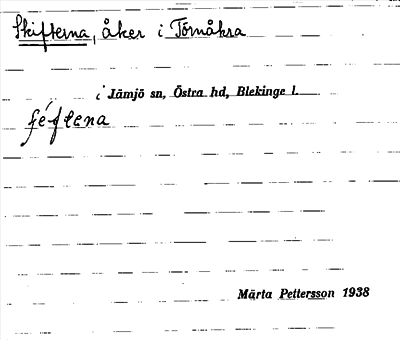 Skifterna, åker i Törnåkra
i Jämjö sn, Östra hd, Blekinge l.
Märta Pettersson 1938